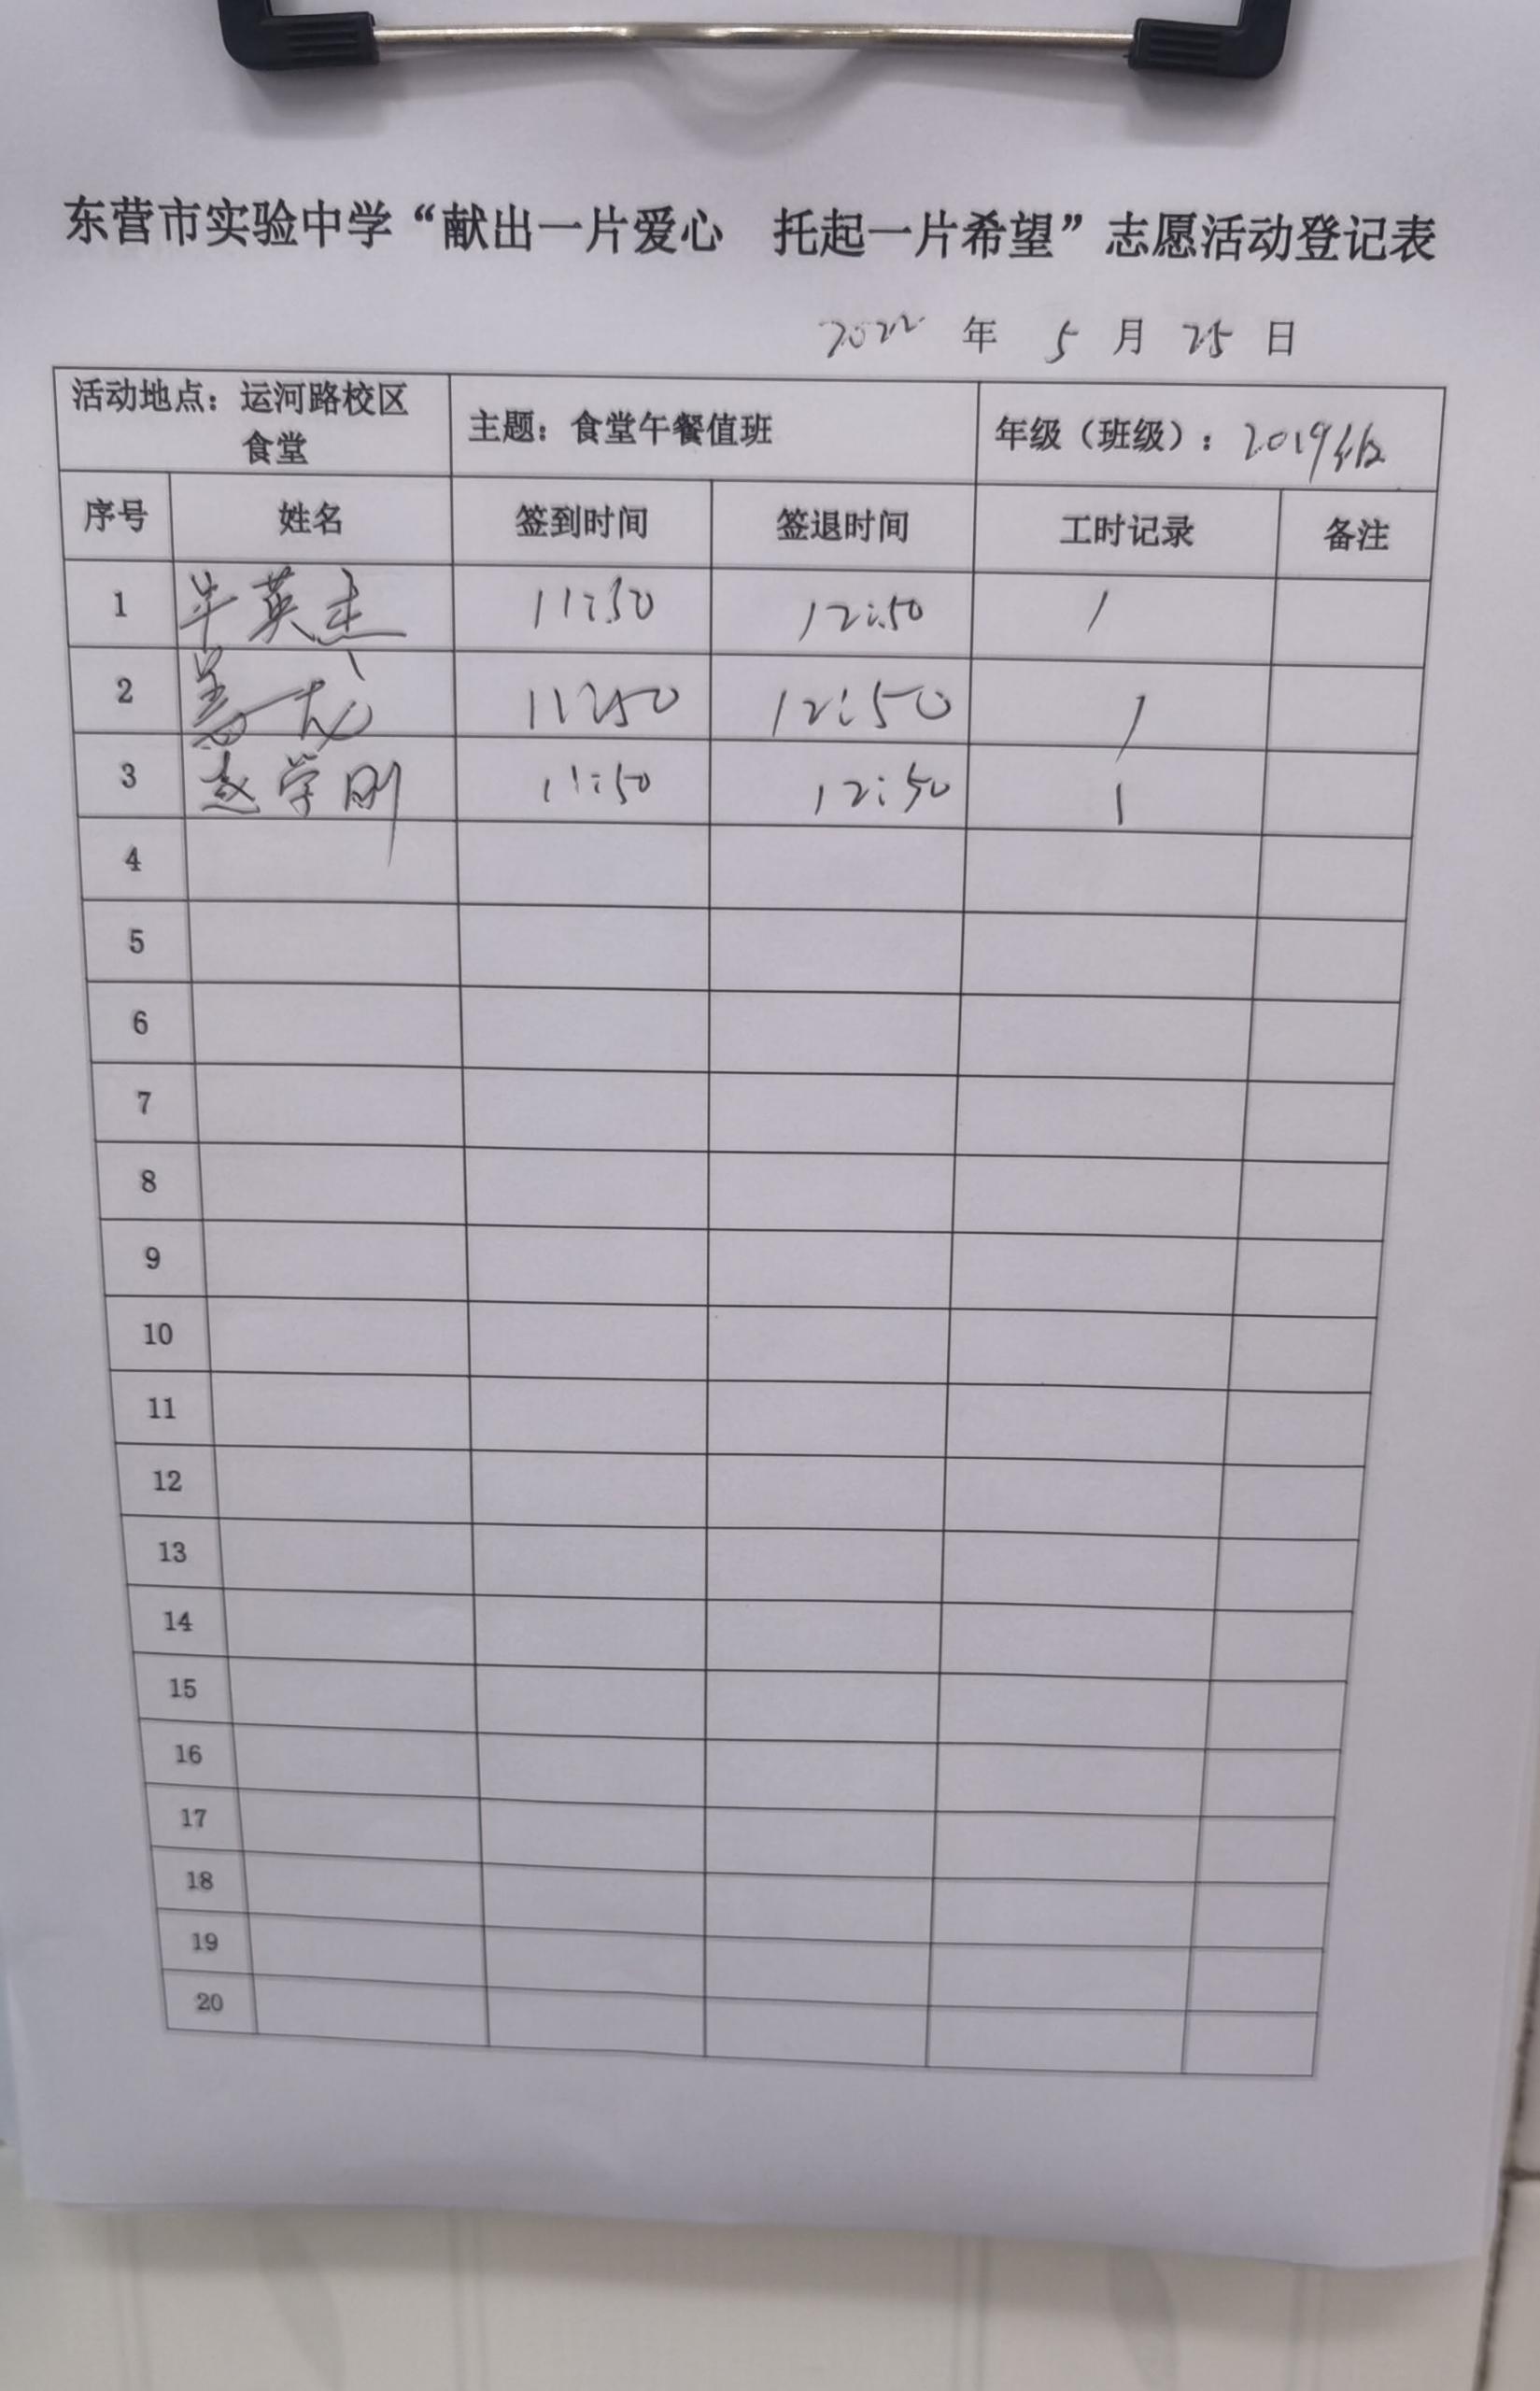 东营市实验中学“献出一片爱心 托起一片希望”志愿活动登记表
2022 年 5 月 25 日
活动地点：运河路校区食堂 主题：食堂午餐值班 年级（班级）：2019级
序号 姓名 签到时间 签退时间 工时记录 备注
1 牛英杰 11:50 12:50 1
2 11:50 12:50 1
3 赵学刚 11:50 12:50 1
4
5
6
7
8
9
10
11
12
13
14
15
16
17
18
19
20